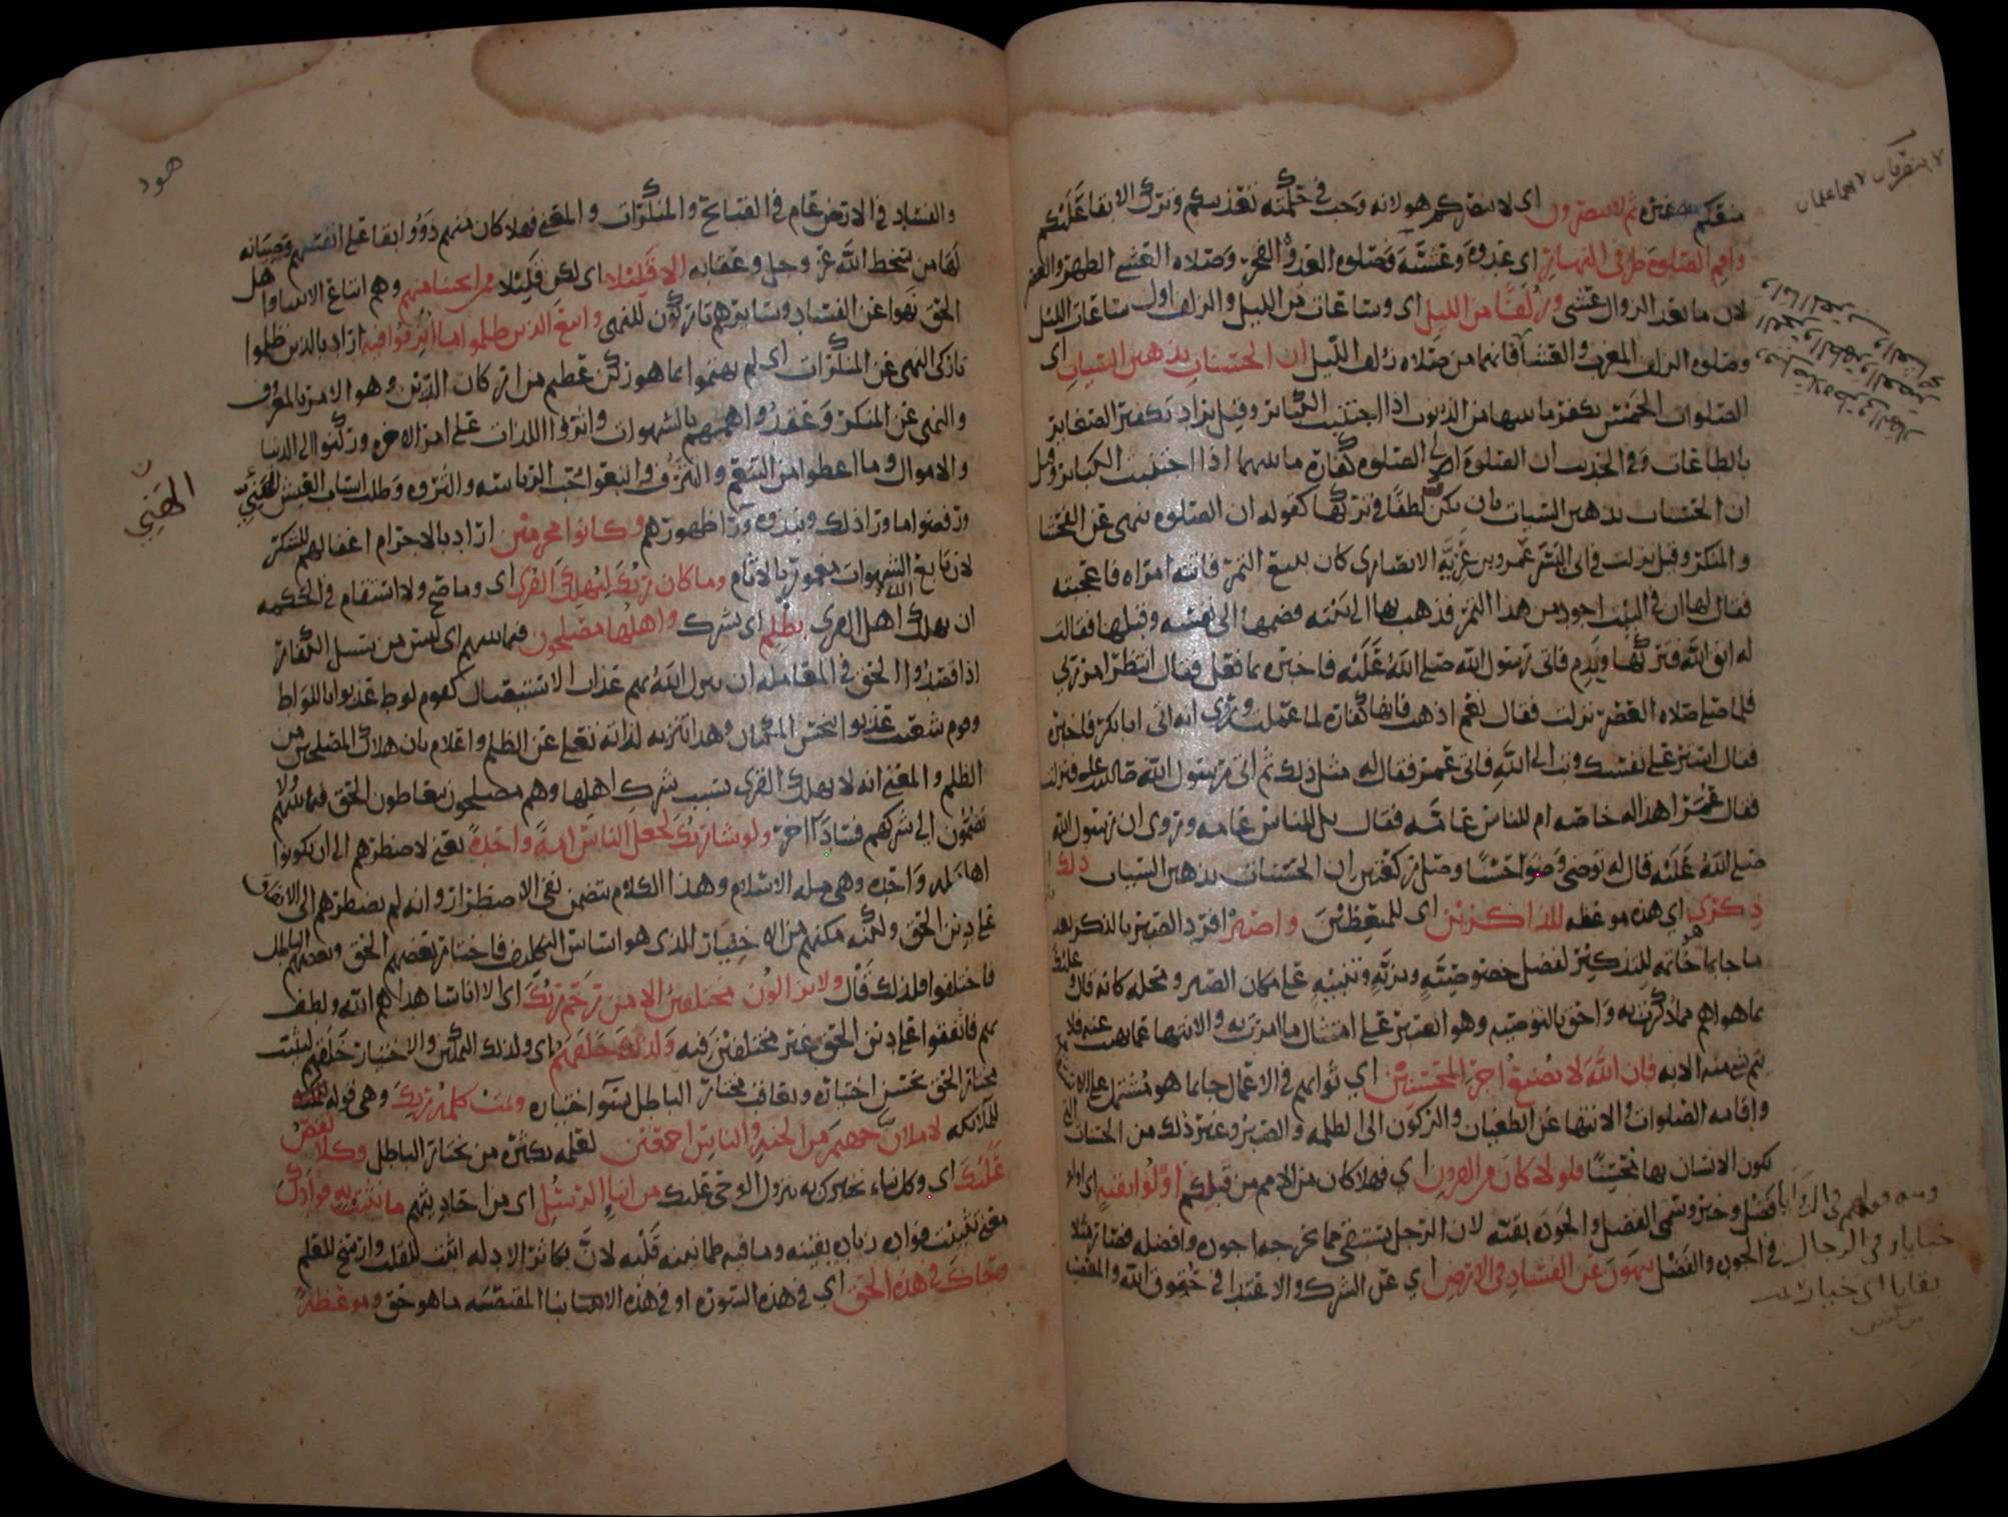 منعكم غيره ثم لا تنصرون اى لا ينصركم هو لانه وجب في حكمته تعذيبكم وترك الابقا عليكم
واقم الصلوة طرفى النهار اى غدوة وعشية فصلوة الغدوة الفجر وصلاه العشى الظهر والعصر
لان ما بعد الزوال عشى وزلفا من الليل اى وساعات من الليل والزلف اول ساعات الليل
وصلوه الزلف المغرب والعشا فانهما من صلاه زلف الليل ان الحسنات يذهبن السيات اى
الصلوات الخمس يكفر ما بينها من الذنوب اذا اجتنبت الكباير وقيل يراد تكفير الصغاير
بالطاعات وفي الحديث ان الصلوة الى الصلوه كفارة ما بينهما اذا اجتنبت الكباير وقيل
ان الحسنات يذهبن السيات بان يكن لطفا في تركها كقوله ان الصلوه تنهى عن الفحشا
والمنكر وقيل نزلت في ابى اليسر عمرو بن غزية الانصارى كان يبيع التمر فاتته امراه فاعجبته
فقال لها ان في البيت اجود من هذا التمر فذهب بها الى بيته فضمها الى نفسه وقبلها فقالت
له اتق الله فتركها وندم فاتى رسول الله صلى الله عليه فاخبره بما فعل فقال انتظر امر ربي
فلما صلى صلاه العصر نزلت فقال نعم اذهب فانها كفارة لما عملت وروي انه اتى ابا بكر فاخبره
فقال استر على نفسك وتب الى الله فاتى عمر فقال له مثل ذلك ثم اتى رسول الله صلى الله عليه فنزلت
فقال عمر اهذا له خاصه ام للناس عامة فقال بل للناس عامه وروى ان رسول الله
صلى الله عليه قال له توضى وضوا حسنا وصل ركعتين ان الحسنات يذهبن السيات ذلك
ذكرى اي هذه موعظه للذاكرين اى للمتعظين واصبر افرد الصبر بالذكر بعد
ما جا بما هو خاتمه للتذكير لفضل خصوصية ومزية وتنبيه على مكان الصبر ومحله كانه قال وعليك
بما هو اهم مما ذكرت به واحق بالتوصيه وهو الصبر على امتثال ما امرت به والانتها عما نهيت عنه فلا
يتم شى منه الا به فان الله لا يضيع اجر المحسنين اي ثوابهم في الاعمال جا بما هو مشتمل على
واقامه الصلوات والانتها عن الطغيان والركون الى الظلمه والصبر وغير ذلك من الحسنات التي
يكون الانسان بها محسنا فلو لا كان من القرون اي فهلا كان من الامم من قبلكم اولوا بقية اى اولو
فضل وخير وسمى الفضل والجودة بقيه لان الرجل يستبقى مما يخرجه اجوده وافضله فصار مثلا
في الجوده والفضل ينهون عن الفساد في الارض اي عن الشرك والاعتدا في حقوق الله والمعنى
هود
والفساد في الارض عام في القبايح والمنكرات والمعنى فهلا كان منهم ذوو ابقا على انفسهم وصيانه
لها من سخط الله عز وجل وعقابه الا قليلا اى لكن قليلا ممن انجينا منهم وهم اتباع الانبيا واهل
الحق نهوا عن الفساد وسايرهم تاركون للنهى واتبع الذين ظلموا ما اترفوا فيه اراد بالذين ظلموا
تاركى النهى عن المنكرات اى لم يهتموا بما هو ركن عظيم من اركان الدين وهو الامر بالمعروف
والنهى عن المنكر وعقدوا هممهم بالشهوات واثروا اللذات على امر الاخره وركنوا الى الدنيا
والاموال وما اعطوا من التنعم والترف واتبعوا حب الرياسه والثروه وطلب اسباب العيش الهني
ورفضوا ما ورا ذلك ونبذوه ورا ظهورهم وكانوا مجرمين اراد بالاجرام اغفالهم للشكر
لان تابع الشهوات مغمور بالاثام وما كان ربك ليهلك القرى اى وما صح ولا استقام في الحكمه
ان يهلك الله اهل القرى بظلم اى بشرك واهلها مصلحون فيما بينهم اى ليس من سبيل الكفار
اذا قصدوا الحق في المعامله ان ينزل الله بهم عذاب الاستيصال كقوم لوط عذبوا باللواط
وقوم شعيب عذبوا ببخس المكيال وهذا تنزيه لذاته تعالى عن الظلم واعلام بان هلاك المصلحين من
الظلم والمعنى انه لا يهلك القرى بسبب شرك اهلها وهم مصلحون يتعاطون الحق فيما بينهم ولا
يضمون الى شركهم فسادا اخر ولو شا ربك لجعل الناس امة واحدة يعنى لاضطرهم الى ان يكونوا
اهل مله واحده وهى مله الاسلام وهذا الكلام يتضمن نفى الاضطرار وانه لم يضطرهم الى الاتفاق
على دين الحق ولكنه مكنهم من الاختيار الذى هو اساس التكليف فاختار بعضهم الحق وبعضهم الباطل
فاختلفوا فلذلك قال ولا يزالون مختلفين الا من رحم ربك اى الا اناسا هداهم الله ولطف
بهم فاتفقوا على دين الحق غير مختلفين فيه ولذلك خلقهم اى ولذلك التمكين والاختيار خلقهم ليثيب
مختار الحق بحسن اختياره ويعاقب مختار الباطل بسو اختياره وتمت كلمة ربك وهى قوله
للملائكه لاملان جهنم من الجنة والناس اجمعين لعلمه بكثرة من يختار الباطل وكلا نقص
عليك اى وكل نباء نخبرك به بنزول الوحى عليك من انبا الرسل اى من احاديثهم ما نثبت به فوادك
معنى تثبيت فواده زياده يقينه وما فيه طمانينه قلبه لان تكاثر الادله اثبت للقلب وارسخ للعلم
وجاك في هذه الحق اي في هذه السوره او في هذه الانبا المقتصه ما هو حق وموعظة
الهني